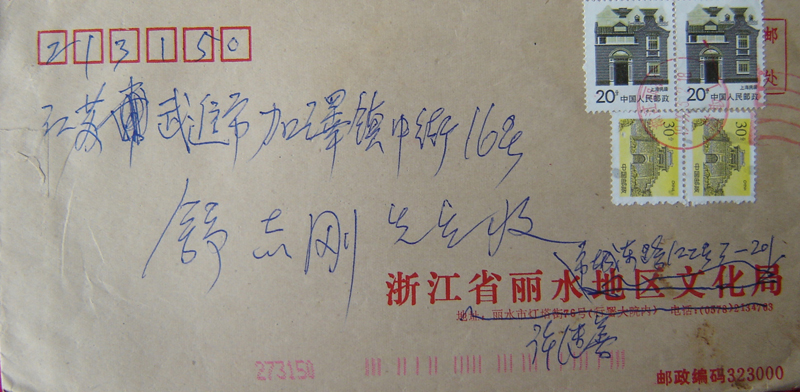 213150
20分 中国人民邮政
20分 中国人民邮政
上海民居
上海民居
30分 中国邮政
30分 中国邮政
邮
处
江苏 武进市加泽镇中街16号
舒志刚先生收
城东路122号
浙江省丽水地区文化局
地址：丽水市灯塔街76号 大院内) 电话:(0578)2134763
许
273150
邮政编码323000